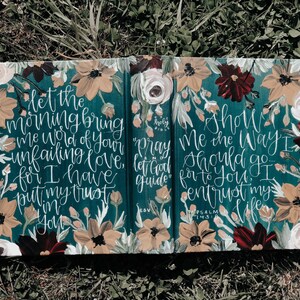 let the
morning bring
me word of your
unfailing love,
for I have
put my trust
in
you
Pray
let God
Show
me the way I
should go
for to you I
entrust my
life
PSALM
143